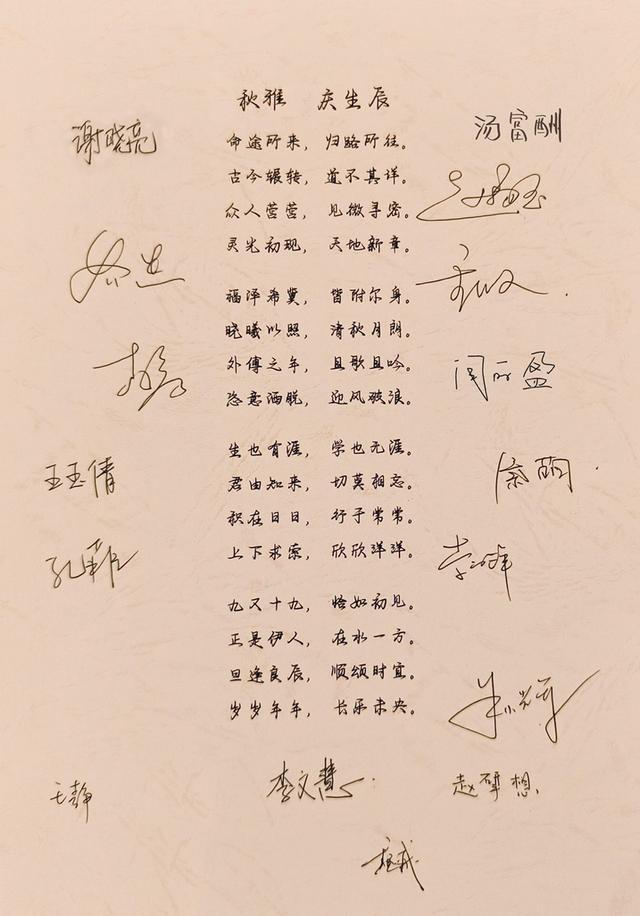 秋雅 庆生辰
谢晓亮
汤富酬
命途所来，归路所往。
古今辗转，道不其详。
众人营营，见微寻密。
灵光初现，天地新章。
福泽希冀，皆附尔身。
晓曦以照，清秋月朗。
外傅之年，且歌且吟。
恣意洒脱，迎风破浪。
闫丽盈
生也有涯，学也无涯。
君由知来，切莫相忘。
王玉倩
积在日日，行于常常。
上下求索，欣欣洋洋。
九又十九，恪如初见。
正是伊人，在水一方。
旦逢良辰，顺颂时宜。
岁岁年年，长乐未央。
王静
李文慧
赵擘想